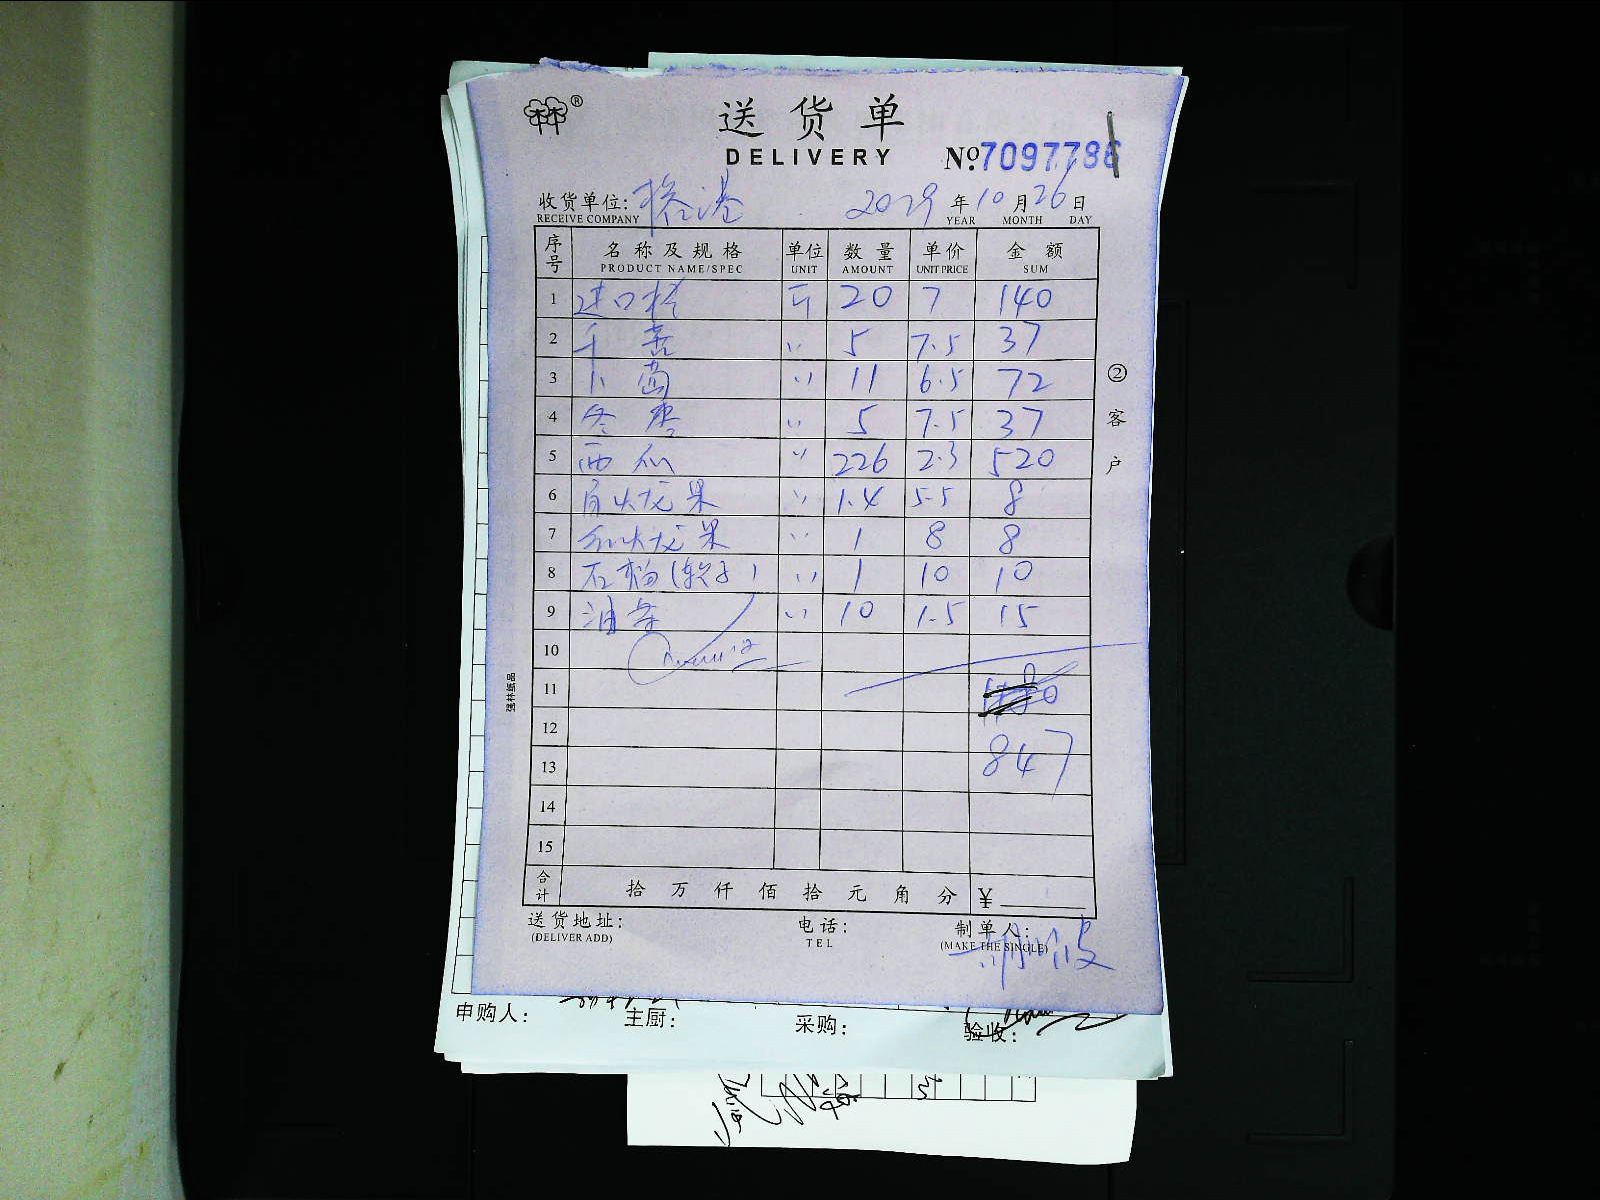 林®
送货单
DELIVERY
№7097786
收货单位: 2029年10月26日
RECEIVE COMPANY YEAR MONTH DAY
序号 名称及规格 单位 数量 单价 金额
PRODUCT NAME/SPEC UNIT AMOUNT UNIT PRICE SUM
1 进口 斤 20 7 140
2 〃 5 7.5 37
3 卜 〃 11 6.5 72
4 冬枣 〃 5 7.5 37
5 西瓜 〃 226 2.3 520
6 火龙果 〃 1.4 5.5 8
7 红火龙果 〃 1 8 8
8 石榴(软子) 〃 1 10 10
9 油 〃 10 1.5 15
10
11
12
847
13
14
15
合计 拾万仟佰拾元角分 ¥
②客户
强林纸品
送货地址: 电话: 制单人:
(DELIVER ADD) TEL (MAKE THE SINGLE)
申购人: 主厨: 采购: 验收: